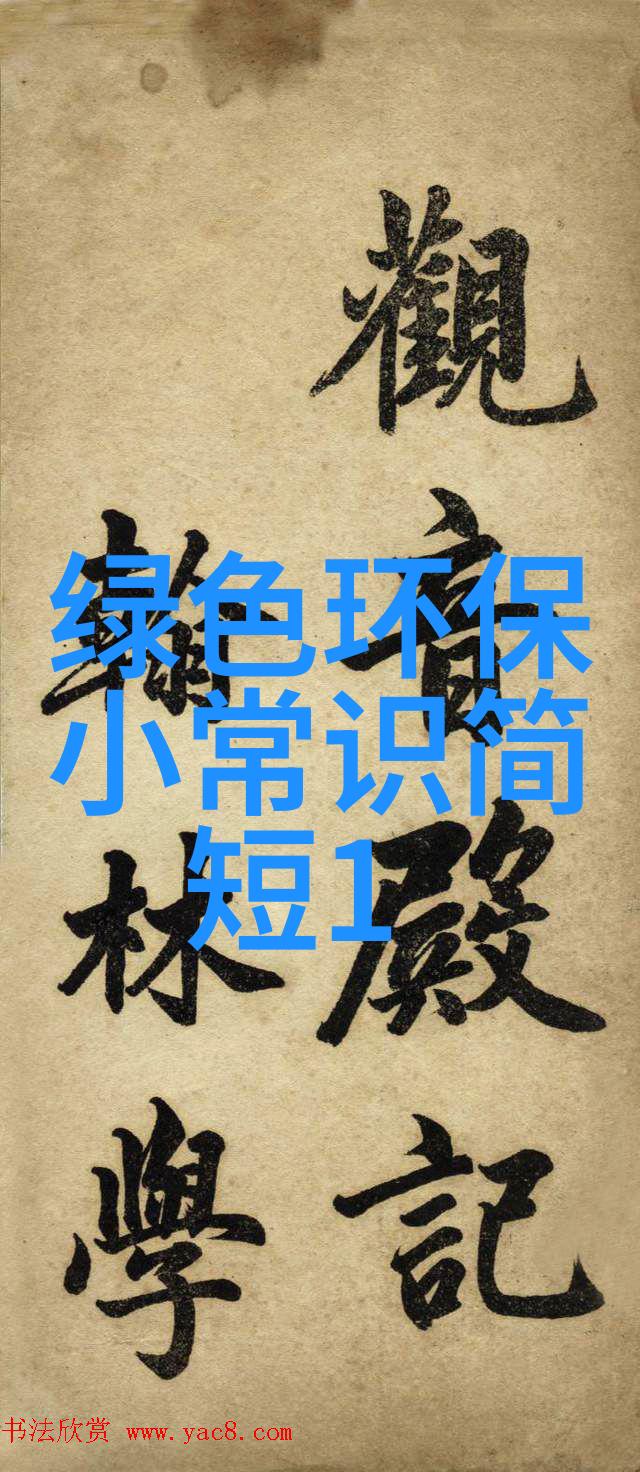 觀音殿記
翰林學
绿色环保
小常识简
短1
书法欣赏 www.yac8.com